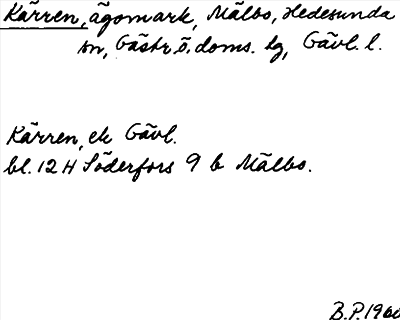 Kärren, ägomark, Mälbo, Hedesunda
sn, Gästr. ö. doms. tg, Gävl. l.
Kärren, ek Gävl.
bl. 12 H Söderfors 9 b Mälbo.
B.P. 1960